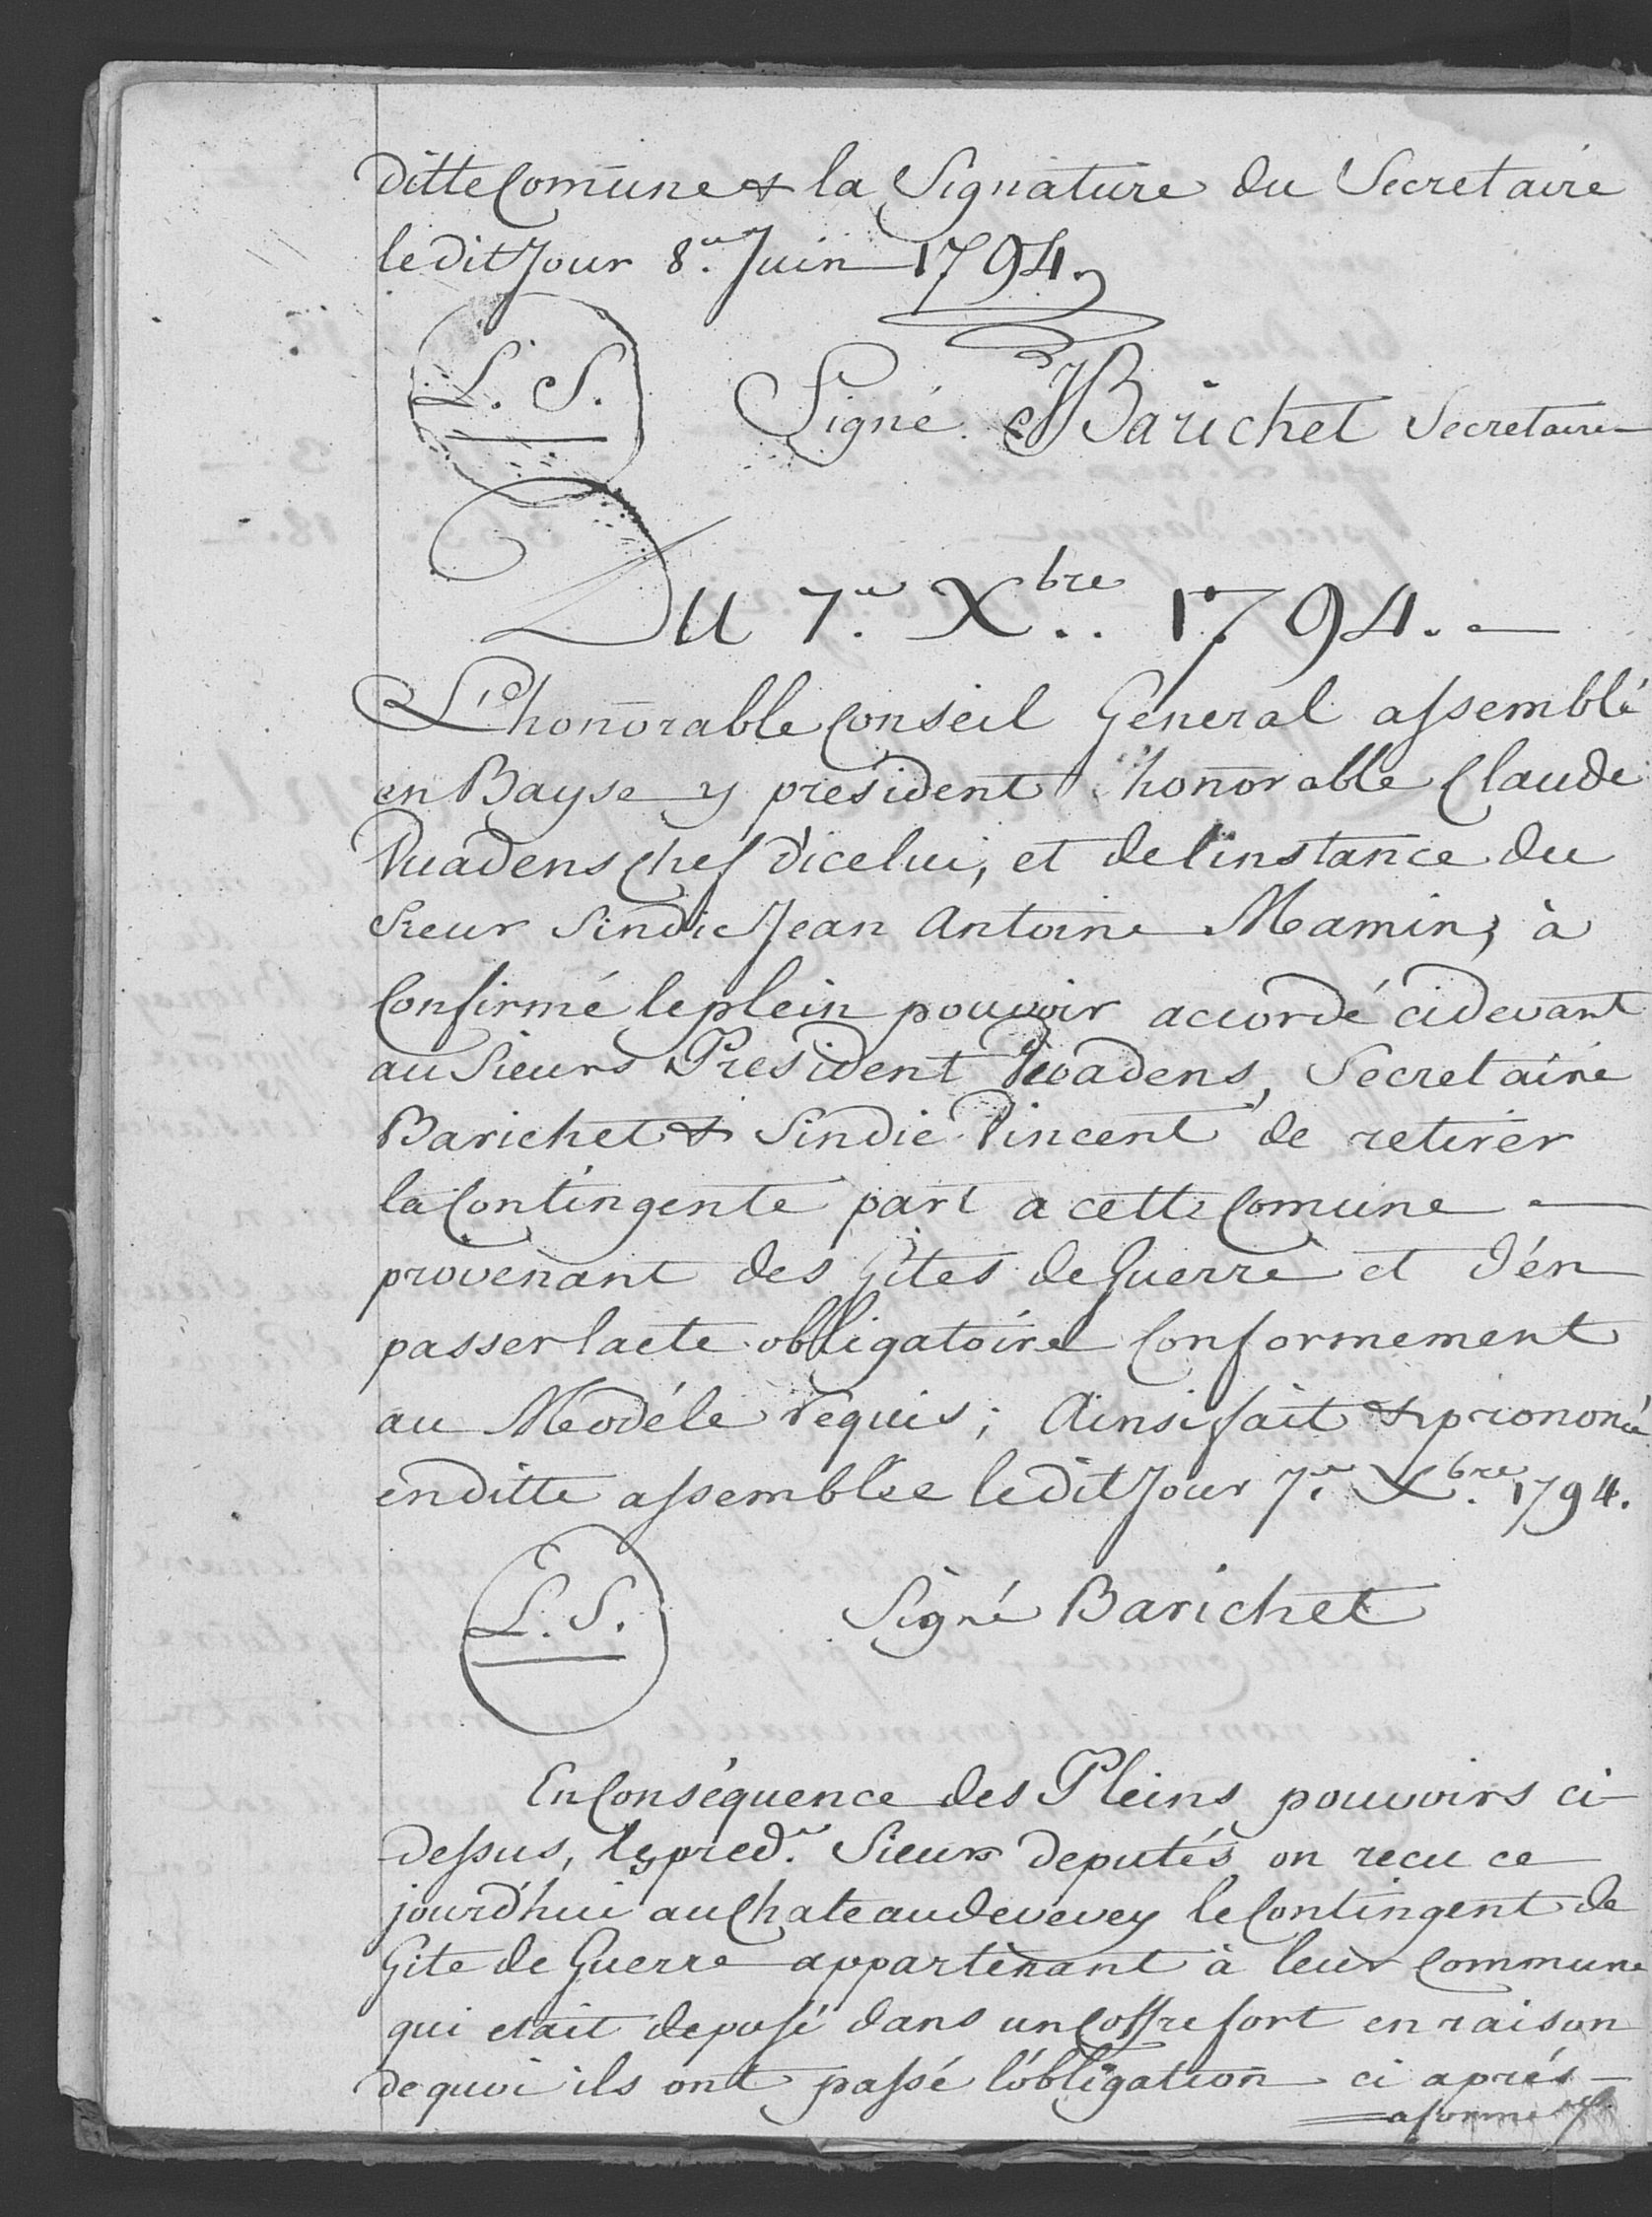 ditte Comūne & la Signature du Secretaire
ledit Jour 8.e Juin 1794.
L. S.
Signé Barichet Secretaire
Du 7.e Xbre.. 1794. —
L'honnorable Conseil General assemblé
en Bayse y president l'honnorable Claude
Vuadens Chef d'icelui, et de linstance du
Sieur Sindic Jean Antoine Mamin, à
Confirmé le plein pouvoir accordé cidevant
au Sieurs President Vuadens, Secretaire
Barichet & Sindic Vincent de retirer
la Contingente part a cette Comune —
provenant des Gites de Guerre et d'en
passer lacte obligatoire Conformement
au Modéle requis; Ainsi fait & prononcé
en ditte assemblée ledit Jour 7.e Xbre. 1794.
L. S.
Signé Barichet
En Conséquence des Pleins pouvoirs ci-
dessus, les pred.s Sieurs deputés on recu ce
jourd'hui au Chateau de vevey le Contingent de
Gite de Guerre appartenant à leur Commune
qui etait deposé dans un Coffre fort en raison
de quoi ils ont passé l'obligation ci aprés —